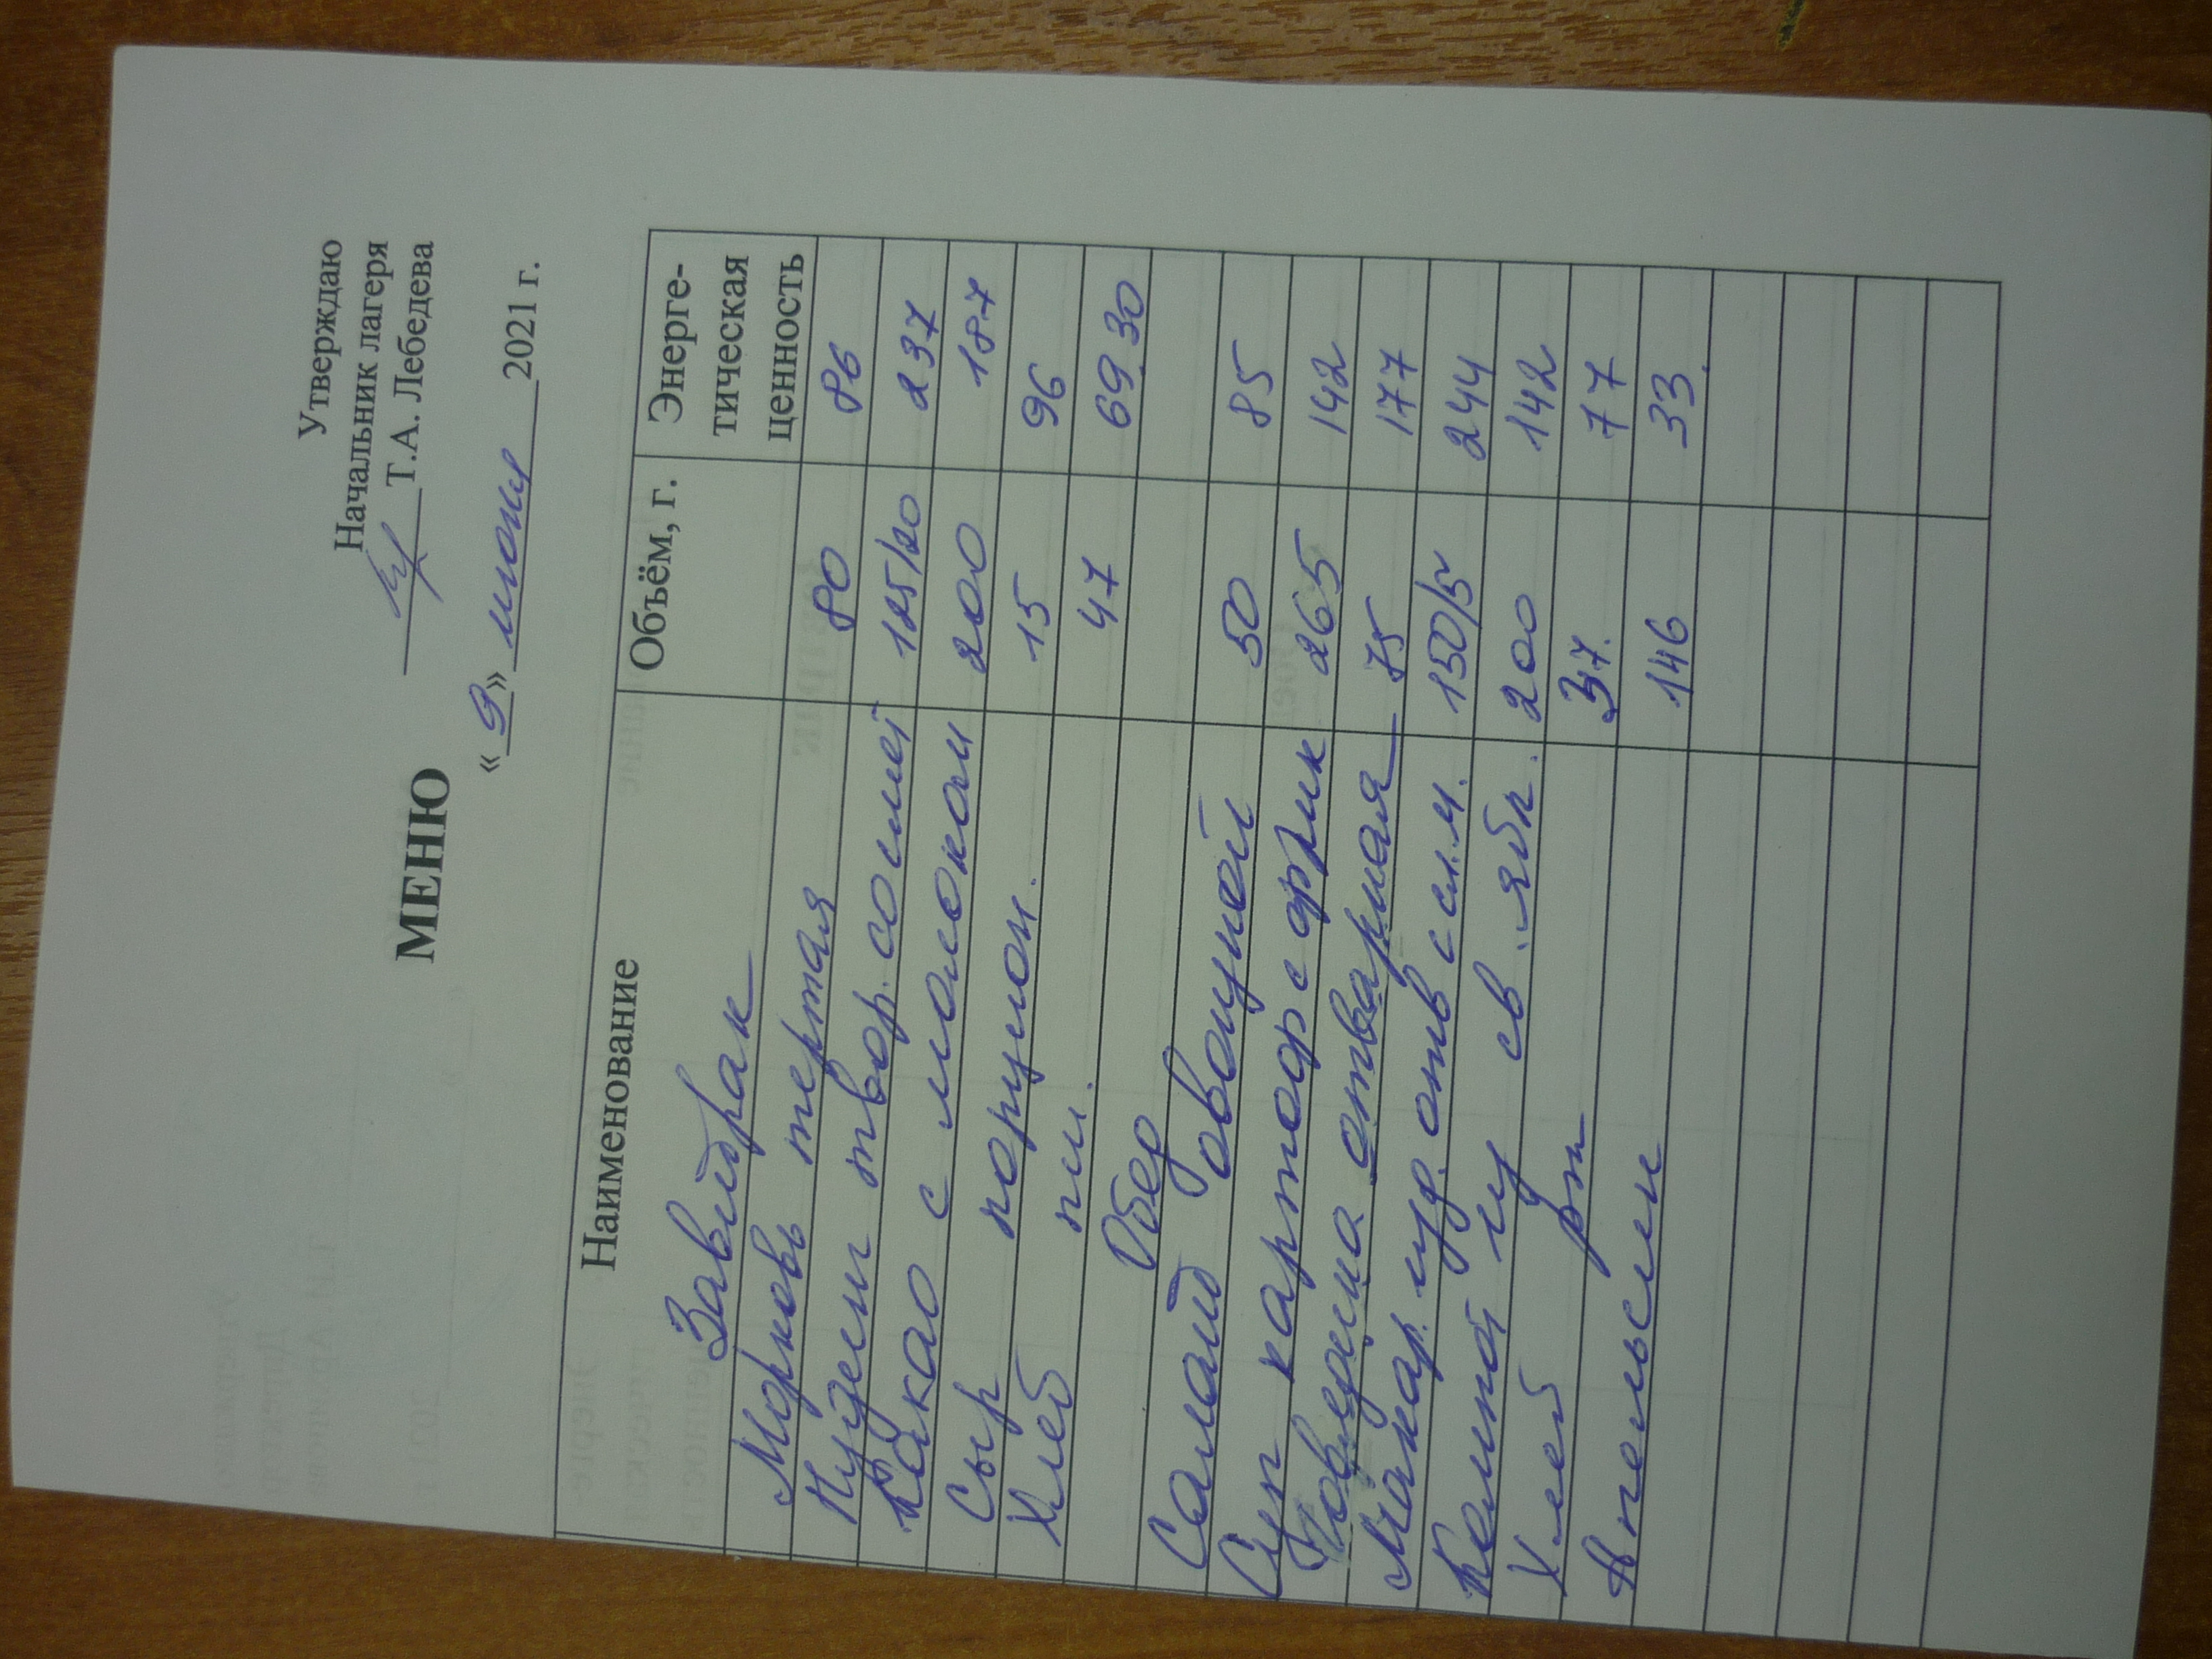 Утверждаю
Начальник лагеря
Т.А. Лебедева
МЕНЮ
«9» июня 2021 г.
Наименование Объём, г. Энерге-
тическая
ценность
Завтрак
Морковь тертая 80 86
Пудинг твор. со смет 125/20 237
Какао с молоком 200 187
Сыр порцион. 15 96
Хлеб пш. 47 69.30
Обед
Салат овощной 50 85
Суп картоф с фрик 265 142
Говядина отварная 75 177
Макар. изд. отв с сл.м. 150/5 244
Компот из св. ябл. 200 142
Хлеб рж 37. 77
Апельсин 146 33.